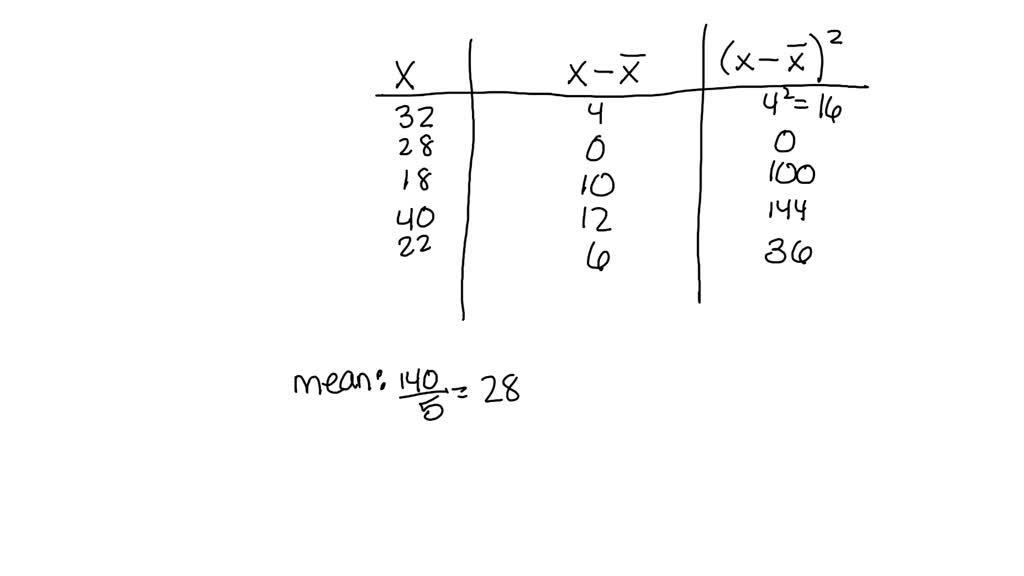 X x – x̅ (x – x̅)²
32 4 4² = 16
28 0 0
18 10 100
40 12 144
22 6 36
mean: 140/5 = 28